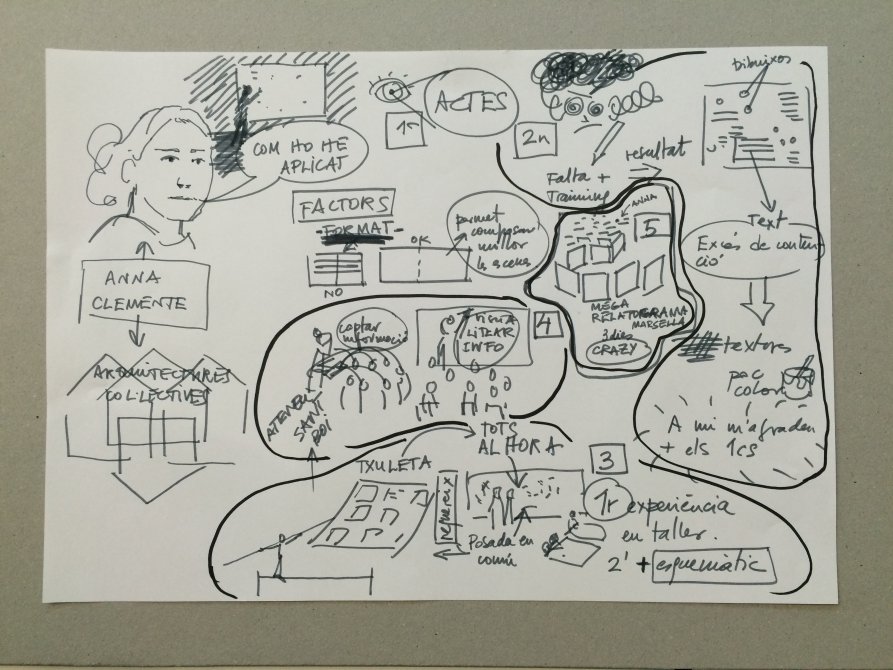 COM HO HE
APLICAT
ANNA
CLEMENTE
ARQUITECTURES
COL·LECTIVES
FACTORS
FORMAT
NO
OK
permet
composar
millor
la escena
1r
ACTES
2n
Falta +
Training
resultat
Dibuixos
TEXT
Excés de conten-
ció
textures
poc
color
A mi m'agraden
+ els 1cs
5
ANNA
MEGA
RELATOGRAMA
MARSELLA
3 dies
CRAZY
4
captar
informació
LITZAR
INFO
ATENEU
SANT
BOI
TOTS
ALHORA
TXULETA
3
Posada en
comú
1r experiència
en taller.
2' + esquemàtic